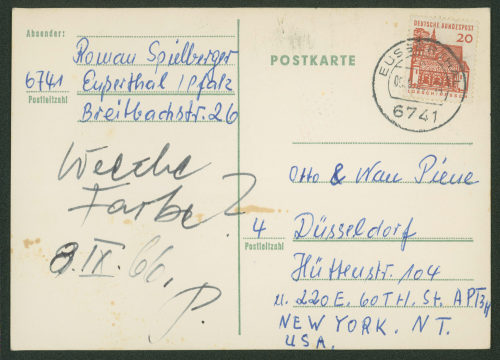 Absender:
Roman Spielberger
6741 Eußerthal / Pfalz
Postleitzahl
Breitbachstr. 26
Welche
Farbe?
8 IX. 66.
P.
POSTKARTE
DEUTSCHE BUNDESPOST
20
6741
Otto & Nan Piene
4 Düsseldorf
Postleitzahl
Hüttenstr. 104
u. 220 E. 60TH. St. APT
NEW YORK. NT.
USA.